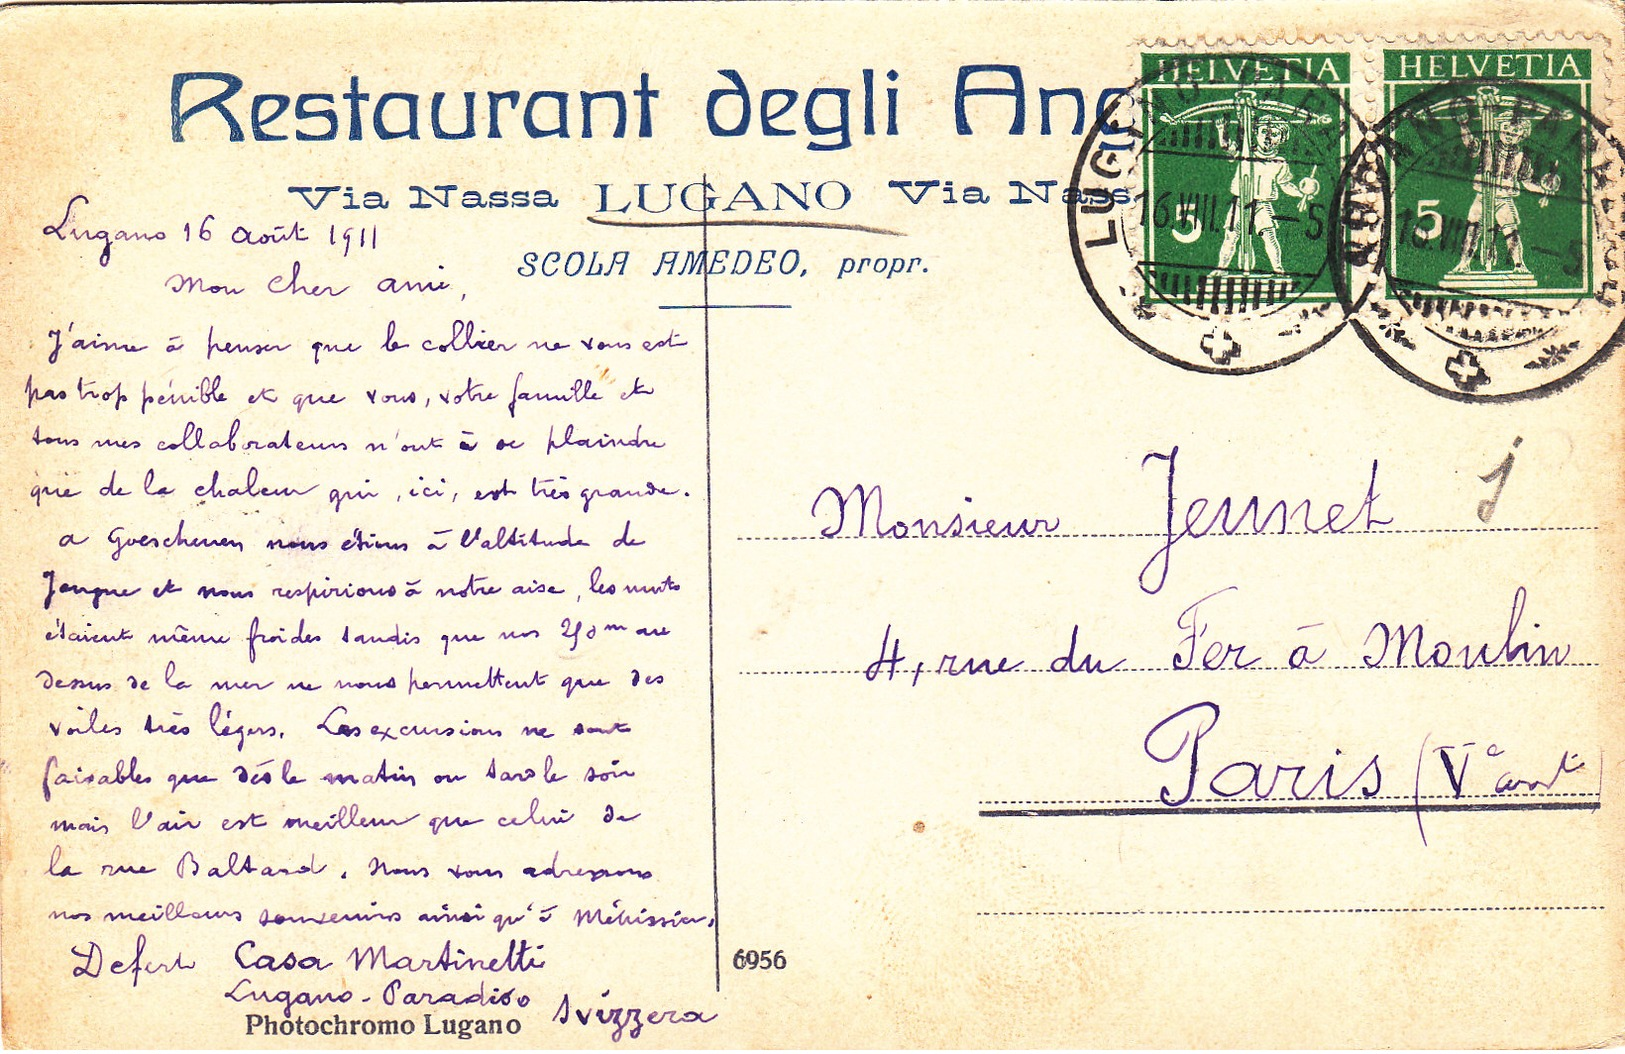 Restaurant degli Ang
Via Nassa LUGANO Via Nass
SCOLA AMEDEO, propr.
HELVETIA
HELVETIA
5
5
LUGANO
16.VIII.11.–5
16.VIII.11.–5
Lugano 16 Août 1911
Mon cher ami,
J'aime à penser que le collier ne vous est
pas trop pénible et que vous, votre famille et
tous mes collaborateurs n'ont à se plaindre
que de la chaleur qui, ici, est très grande.
a Goeschenen nous étions à l'altitude de
et nous respirions à notre aise, les nuits
étaient même froides tandis que nos 250 m au
dessus de la mer ne nous permettent que des
voiles très légers. Les excursions ne sont
faisables que dès le matin ou tard le soir
mais l'air est meilleur que celui de
la rue Baltard. Nous vous adressons
nos meilleurs souvenirs ainsi qu'à
Defert Casa Martinetti
Lugano-Paradiso
Svizzera
Photochromo Lugano
6956
Monsieur Jeunet
4, rue du Fer à Moulin
Paris (Ve arrt)